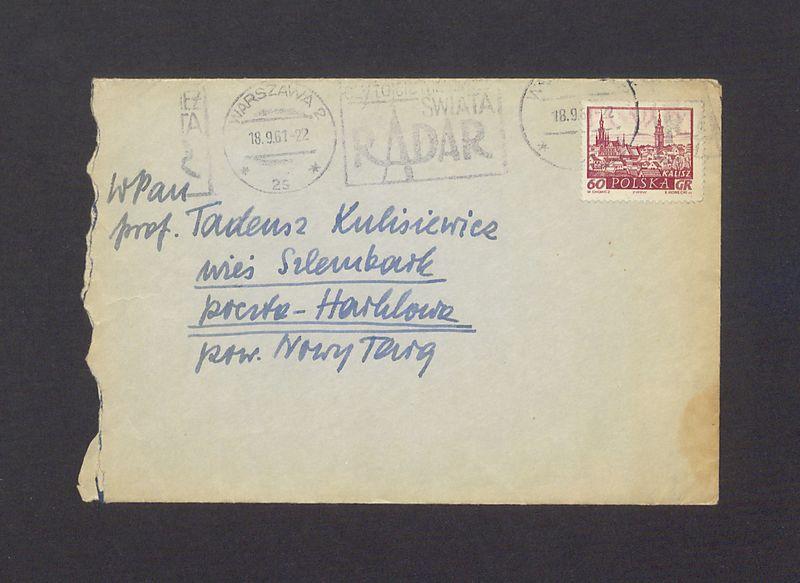 WARSZAWA 2
18.9.61-22
2s
ŚWIATA
RADAR
18.9.6
22
KALISZ
60 POLSKA GR
WPan
prof. Tadeusz Kulisiewicz
wieś Szlembark
poczta - Harklowa
pow. Nowy Targ